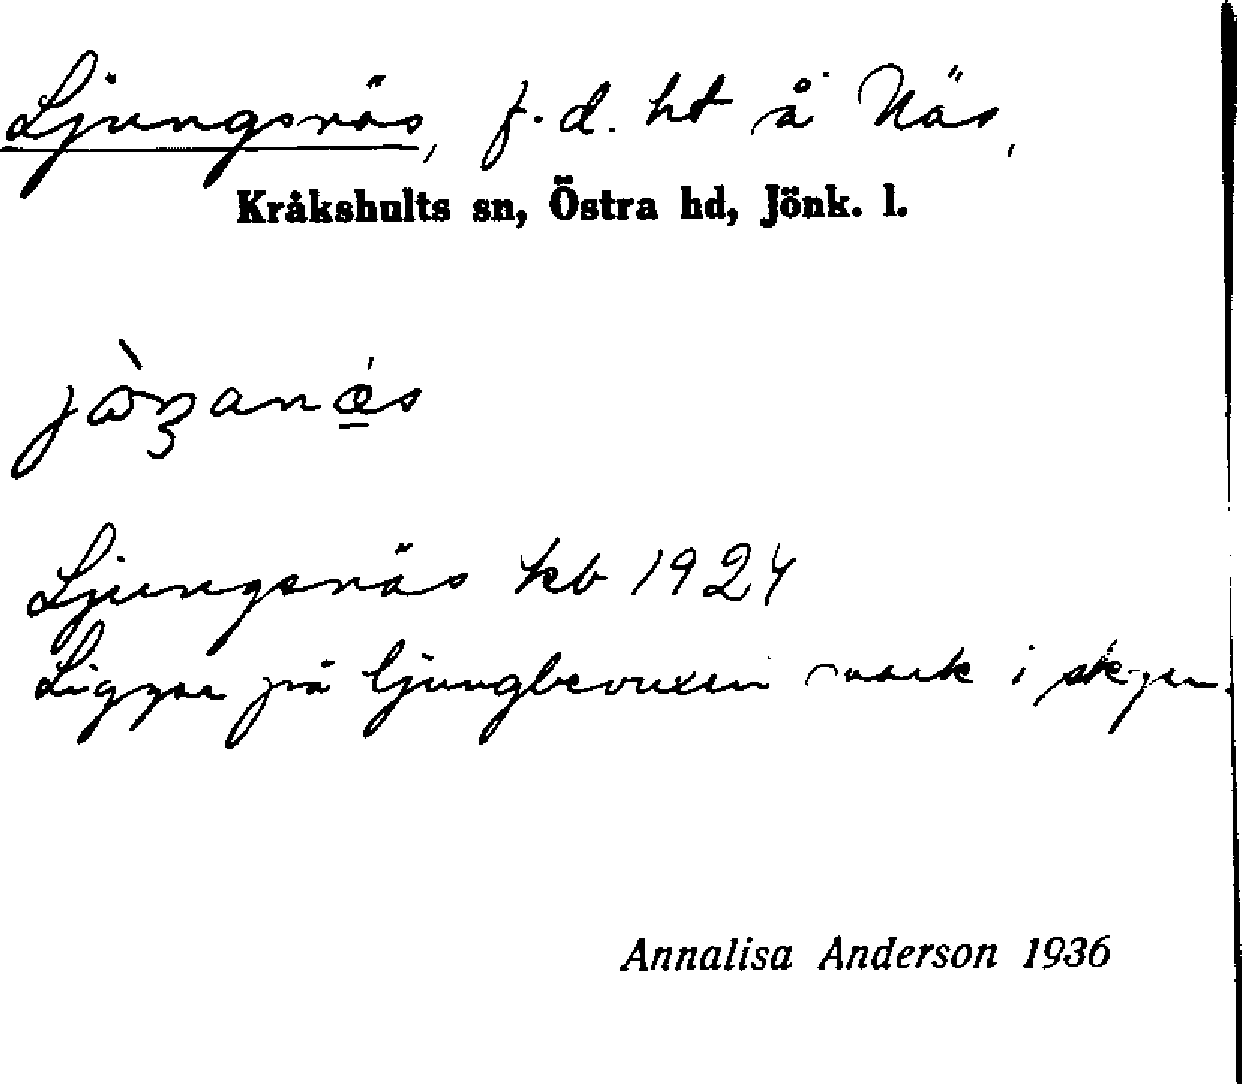 Ljungsnäs, f.d. ht å Näs,
Kråkshults sn, Östra hd, Jönk. l.
Ljungsnäs kb 1924
Ligger på ljungbevuxen mark i skogen.
Annalisa Anderson 1936